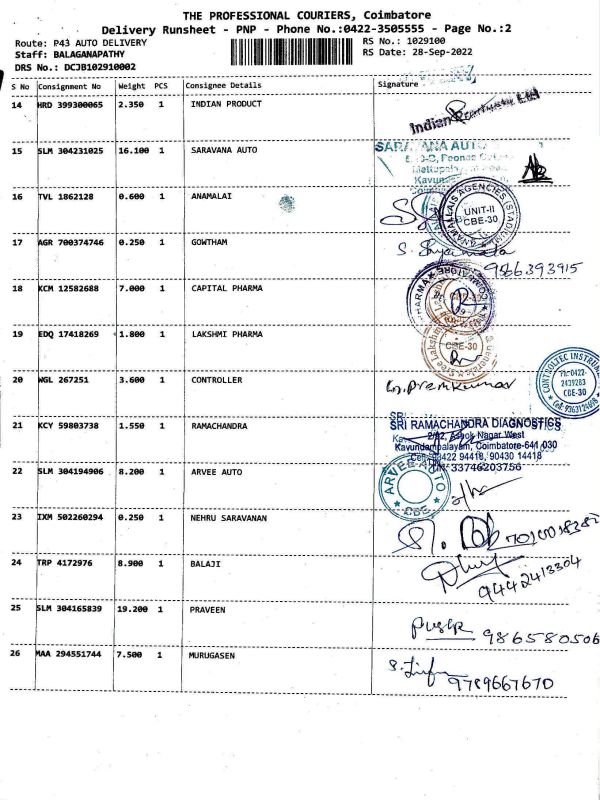 THE PROFESSIONAL COURIERS, Coimbatore
Delivery Runsheet - PNP - Phone No.:0422-3505555 - Page No.:2
Route: P43 AUTO DELIVERY
RS No.: 1029100
Staff: BALAGANAPATHY
RS Date: 28-Sep-2022
DRS No.: DCJB102910002
S No Consignment No Weight PCS Consignee Details Signature
14 HRD 399300065 2.350 1 INDIAN PRODUCT
Indian Products Ltd
15 SLM 304231025 16.100 1 SARAVANA AUTO
SARAVANA AUTO
16 TVL 1862128 0.600 1 ANAMALAI
ANAMALLAIS AGENCIES
UNIT-II
CBE-30
17 AGR 700374746 0.250 1 GOWTHAM
9866393915
18 KCM 12582688 7.000 1 CAPITAL PHARMA
PHARMA COIMBATORE
CBE-30
19 EDQ 17418269 1.800 1 LAKSHMI PHARMA
Sree Lakshmi
CBE-30
20 WGL 267251 3.600 1 CONTROLLER
Premkumar
CONTROLTEC INSTRUM
Ph:0422-
2439283
CBE-30
Cell: 9363124608
21 KCY 59803738 1.550 1 RAMACHANDRA
SRI RAMACHANDRA DIAGNOSTICS
2/92, Ashok Nagar West
Kavundampalayam, Coimbatore-641 030
Cell: 0422 94418, 90430 14418
33746203756
22 SLM 304194906 8.200 1 ARVEE AUTO
ARVEE AUTO
CBE
23 IXM 502260294 0.250 1 NEHRU SARAVANAN
24 TRP 4172976 8.900 1 BALAJI
9442413304
25 SLM 304165839 19.200 1 PRAVEEN
986580506
26 MAA 294551744 7.500 1 MURUGASEN
9789667670